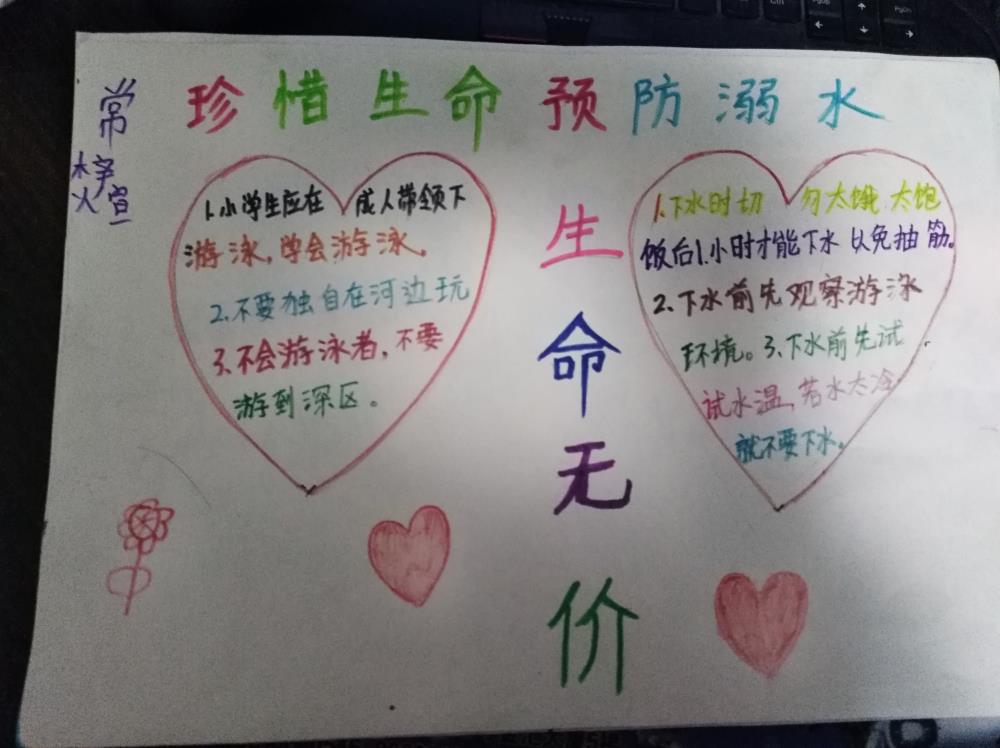 珍惜生命预防溺水
常
宣
1.小学生应在 成人带领下
游泳,学会游泳。
2.不要独自在河边玩
3.不会游泳者,不要
游到深区。
生
命
无
价
1.下水时切 勿太饿 太饱
饭后1.小时才能下水 以免抽筋。
2.下水前先观察游泳
环境。3.下水前先试
试水温,若水太冷
就不要下水。